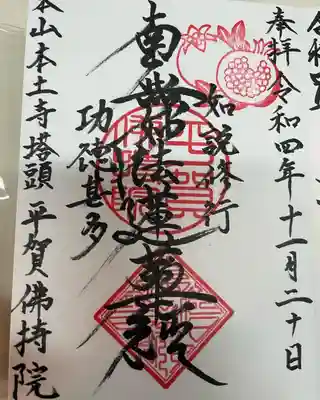 奉拝 令和四年十一月二十日
如説修行
南無妙法蓮華経
功徳甚多
本山本土寺塔頭 平賀佛持院